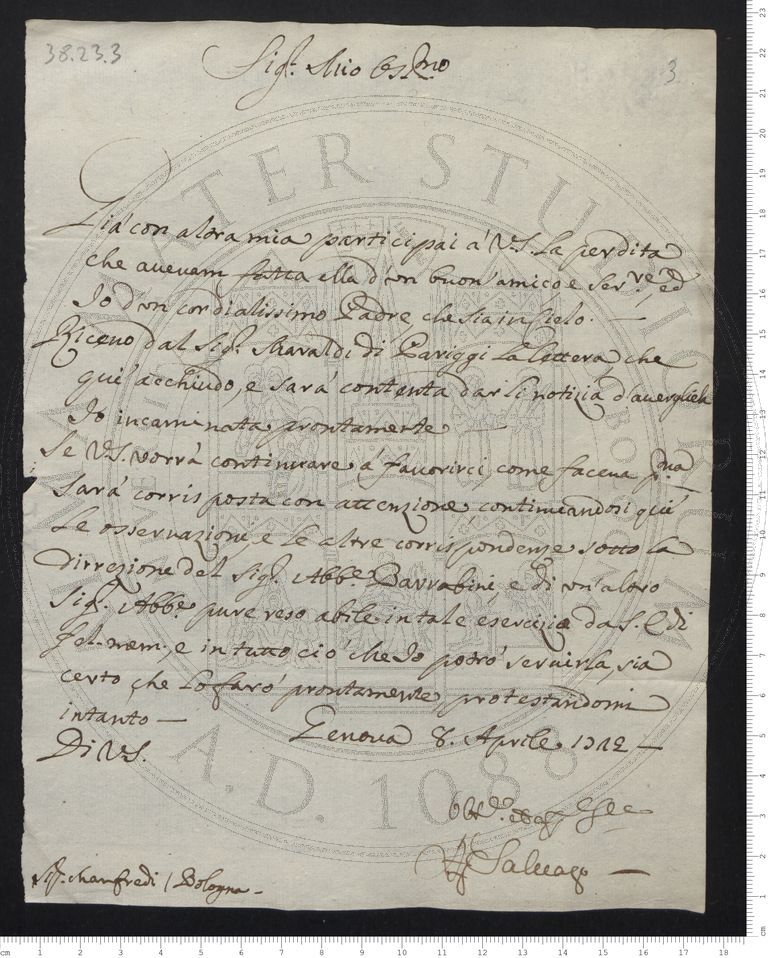 38.23.3
3
Sig.r Mio Oss.mo
Già con altra mia participai à V.S. la perdita
che avevam fatta ella d'un buon'amico e ser.re, ed
Io d'un cordialissimo Padre, che sia in Cielo. —
Ricevo dal Sig.r Maraldi di Pariggi la lettera che
qui acchiudo, e sarà contenta darli notizia d'avergliela
Io incaminata prontamente —
Se V.S. vorrà continuare à favorirci, come faceva p.ma
sarà corrisposta con attenzione continuandosi quì
le osservazioni, e le altre corrispondenze sotto la
Dirrezione del Sig.r Abb.e Barrabini, e di un'altro
Sig.r Abb.e pure reso abile in tale esercizio da S.E. di
fel. mem., e in tutto ciò che Io potrò servirla, sia
certo che lo farò prontamente protestandomi
intanto —
Genova 8. Aprile. 1712 —
Di V.S.
Salvago —
Sig.r Manfredi / Bologna —
ALMA MATER STUDIORUM
A.D. 1088
cm 1 2 3 4 5 6 7 8 9 10 11 12 13 14 15 16 17 18
cm 1 2 3 4 5 6 7 8 9 10 11 12 13 14 15 16 17 18 19 20 21 22 23